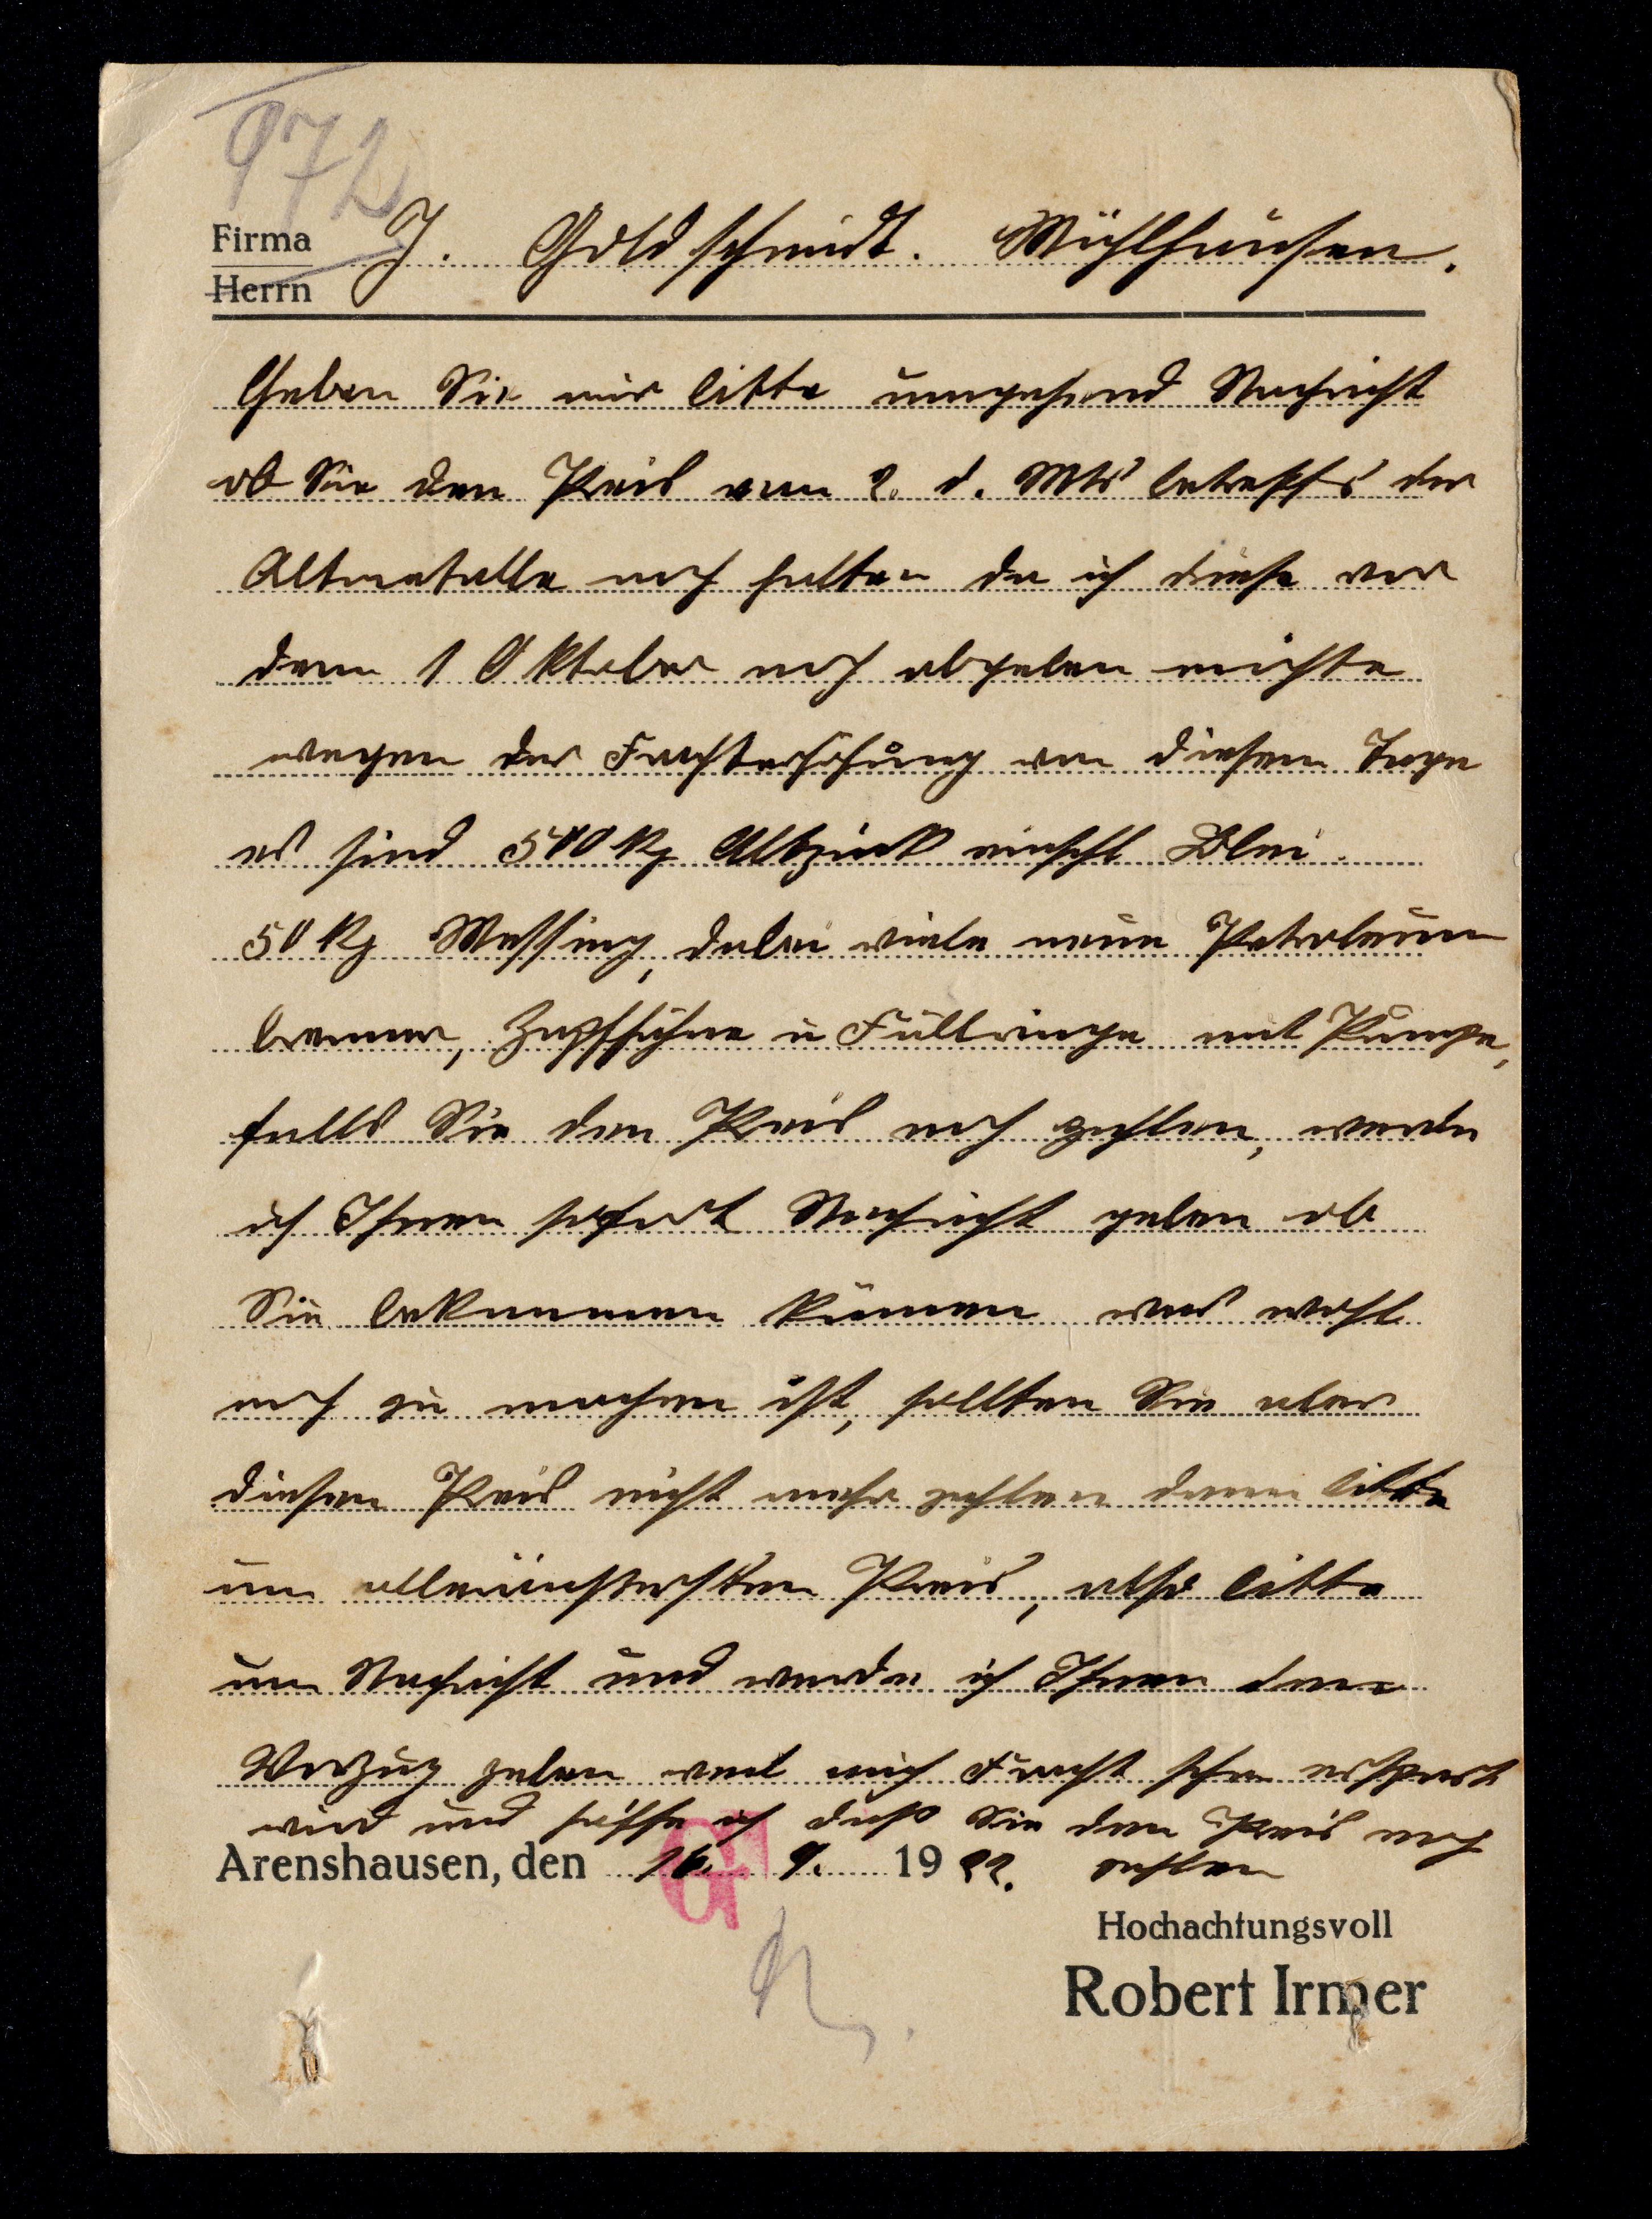 972
Firma
Herrn
J. Goldschmidt. Mühlhausen.
Geben Sie mir bitte umgehend Nachricht
ob Sie den Preis vom 2. d. Mts betreffs der
Altmetalle noch halten da ich diese vor
dem 1 Oktober noch abgeben möchte
wegen der Frachterhöhung von diesem Tage
es sind 500 kg Altzink einschl Blei.
50 kg Messing, dabei viele neue Petroleum
brenner, Zapfhähne u Füllringe mit Pumpe,
falls Sie den Preis noch zahlen, werde
ich Ihnen sofort Nachricht geben ob
Sie bekommen können was wohl
noch zu machen ist, sollten Sie aber
diesen Preis nicht mehr zahlen dann bitte
um alleräußersten Preis, also bitte
um Nachricht und werde ich Ihnen den
Vorzug geben weil mich Fracht schon erspart
wird und hoffe ich daß Sie den Preis noch
zahlen
Arenshausen, den 16. 9. 1922.
G
Hochachtungsvoll
Robert Irmer